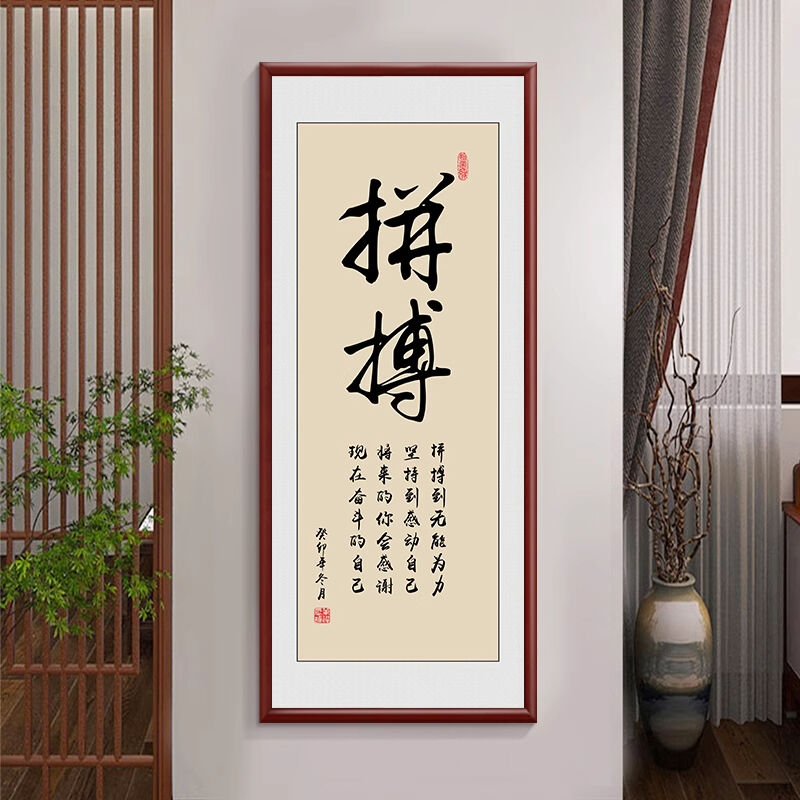 拼搏
拼搏到无能为力
坚持到感动自己
将来的你会感谢
现在奋斗的自己
癸卯年冬月